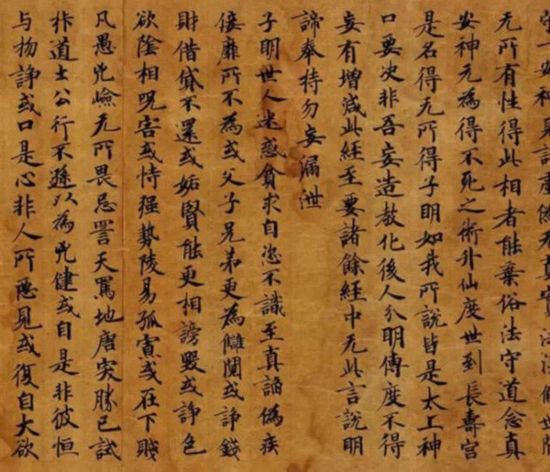 无所有性得此相者能棄俗法守道念真
安神无為得不死之術升仙度世到長壽宮
是名得无所得子明如我所說皆是太上神
口要决非吾妄造教化後人分明傳度不得
妄有增減此經至要諸餘經中无此言說明
諦奉持勿妄漏泄
子明世人迷惑貪求自恣不識至真諂偽疾
倿靡所不為或父子兄弟更為讎鬪或諍錢
財借貸不還或妬賢能更相謗毀或諍色
欲陰相呪害或恃强勢陵易孤寡或在下賤
凡愚兇嶮无所畏忌詈天罵地唐突勝己試
道士公行不遜以為兇健或自是非彼恒
与物諍或口是心非人所惡見或復自大欲